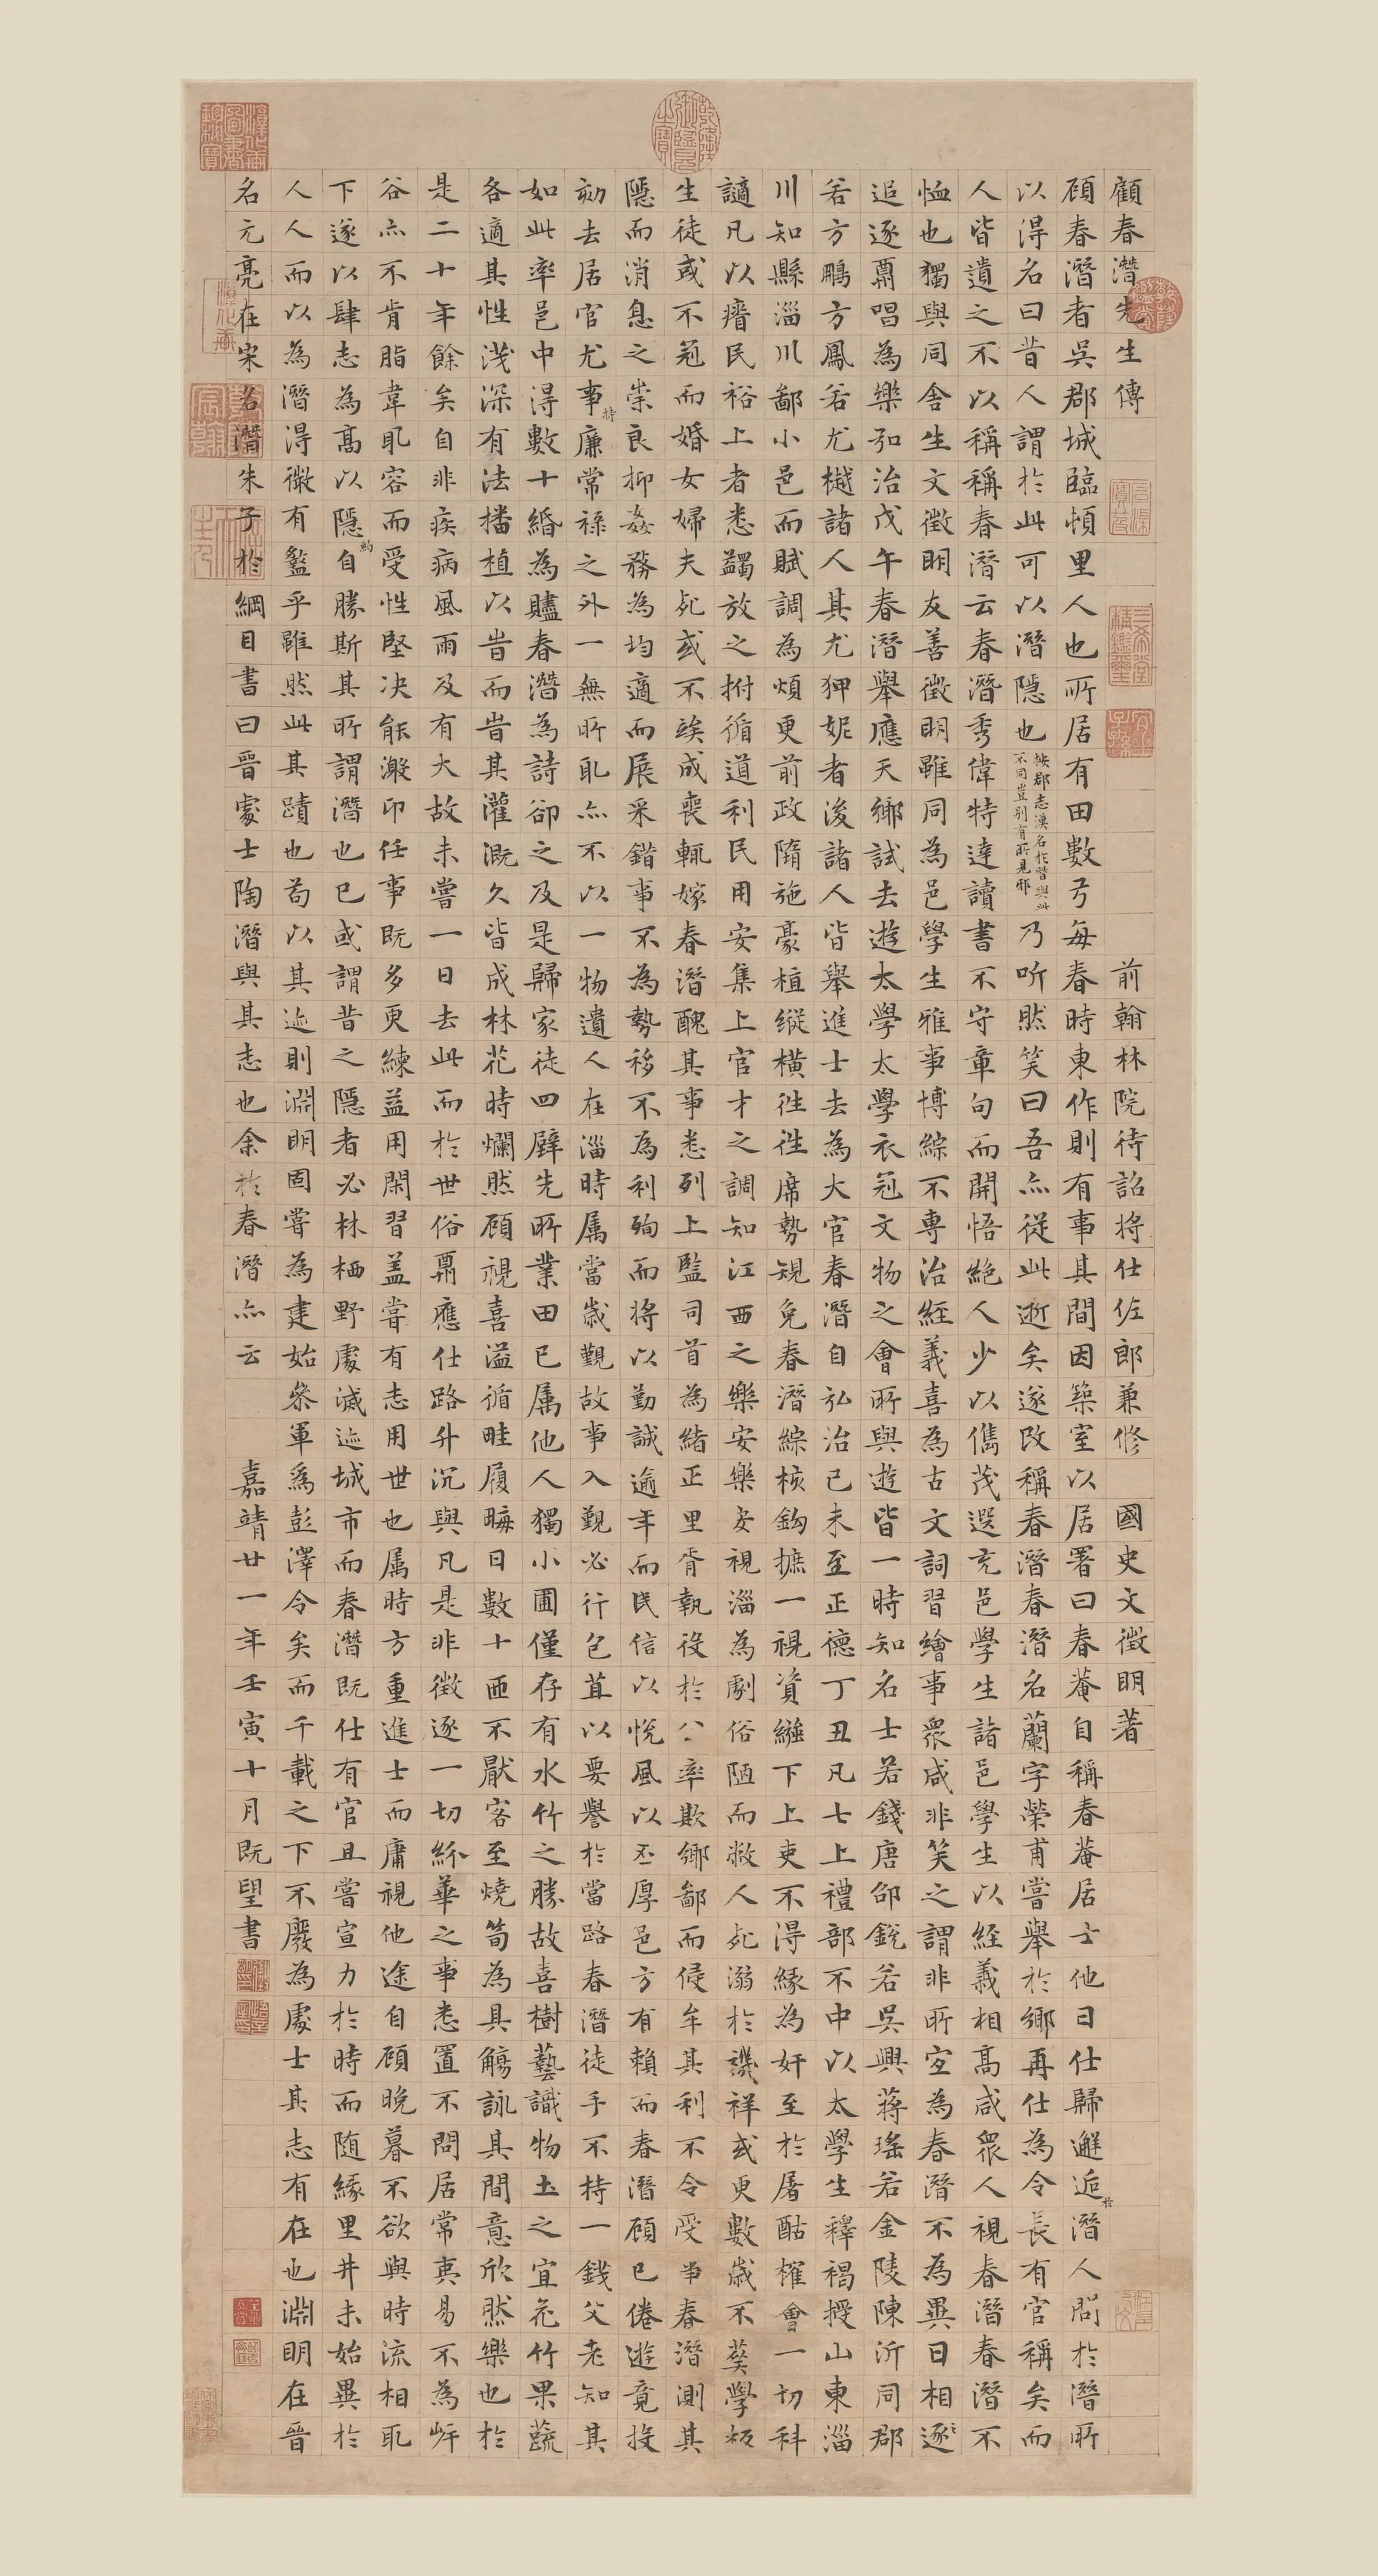 顧春潛先生傳 前翰林院待詔將仕佐郎兼修 國史文徵明著
顧春潛者吳郡城臨頓里人也所居有田數弓每春時東作則有事其間因築室以居署曰春菴自稱春菴居士他日仕歸邂逅於潛人問於潛所
以得名曰昔人謂於此可以潛隱也按郡志漢名於朁與此不同豈別有所見邪乃听然笑曰吾亦從此逝矣遂改稱春潛春潛名蘭字榮甫嘗舉於鄉再仕為令長有官稱矣而
人皆遺之不以稱稱春潛云春潛秀偉特達讀書不守章句而開悟絕人少以儁茂選充邑學生諸邑學生以經義相高咸眾人視春潛春潛不
恤也獨與同舍生文徵明友善徵明雖同為邑學生雅事博綜不專治經義喜為古文詞習繪事眾咸非笑之謂非所宜為春潛不為異日相逐
追逐鼎唱為樂弘治戊午春潛舉應天鄉試去遊太學太學衣冠文物之會所與遊皆一時知名士若錢唐邵銳若吳興蔣瑤若金陵陳沂同郡
若方鵬方鳳若尤樾諸人其尤狎妮者後諸人皆舉進士去為大官春潛自弘治己未至正德丁丑凡七上禮部不中以太學生釋褐授山東淄
川知縣淄川鄙小邑而賦調為煩更前政隋施豪植縱橫往往席勢規免春潛綜核鈎摭一視資繇下上吏不得緣為奸至於屠酤榷會一切科
謫凡以瘤民裕上者悉蠲放之拊循道利民用安集上官才之調知江西之樂安樂安視淄為劇俗陋而敝人死溺於禨祥或更數歲不葬學校
生徒或不冠而婚女婦夫死或不竢成喪輒嫁春潛醜其事悉列上監司首為緒正里胥執役於公率欺鄉鄙而侵牟其利不令受事春潛測其
隱而消息之崇良抑姦務為均適而展采錯事不為勢移不為利殉而將以勤誠逾年而民信以悅風以丕厚邑方有賴而春潛顧已倦遊竟投
劾去居官尤事持廉常祿之外一無所取亦不以一物遺人在淄時属當歲覲故事入覲必行包苴以要譽於當路春潛徒手不持一錢父老知其
如此率邑中得數十緡為贐春潛為詩卻之及是歸家徒四壁先所業田已属他人獨小圃僅存有水竹之勝故喜樹藝識物土之宜花竹果蔬
各適其性淺深有法播植以旹而旹其灌溉久皆成林花時爛然顧視喜溢循畦履畮日數十匝不厭客至燒筍為具觴詠其間意欣然樂也於
是二十年餘矣自非疾病風雨及有大故未嘗一日去此而於世俗鼎應仕路升沉與凡是非徵逐一切紛華之事悉置不問居常夷易不為岸
谷亦不肯脂韋取容而受性堅決能澉印任事既多更練益用閑習盖嘗有志用世也属時方重進士而庸視他途自顧晚暮不欲與時流相取
下遂以肆志為高以隱約自勝斯其所謂潛也已或謂昔之隱者必林栖野處滅迹城市而春潛既仕有官且嘗宣力於時而随緣里井未始異於
人人而以為潛得微有盭乎雖然此其蹟也苟以其迹則淵明固嘗為建始參軍為彭澤令矣而千載之下不廢為處士其志有在也淵明在晉
名元亮在宋名潛朱子於綱目書曰晉處士陶潛與其志也余於春潛亦云 嘉靖廿一年壬寅十月既望書